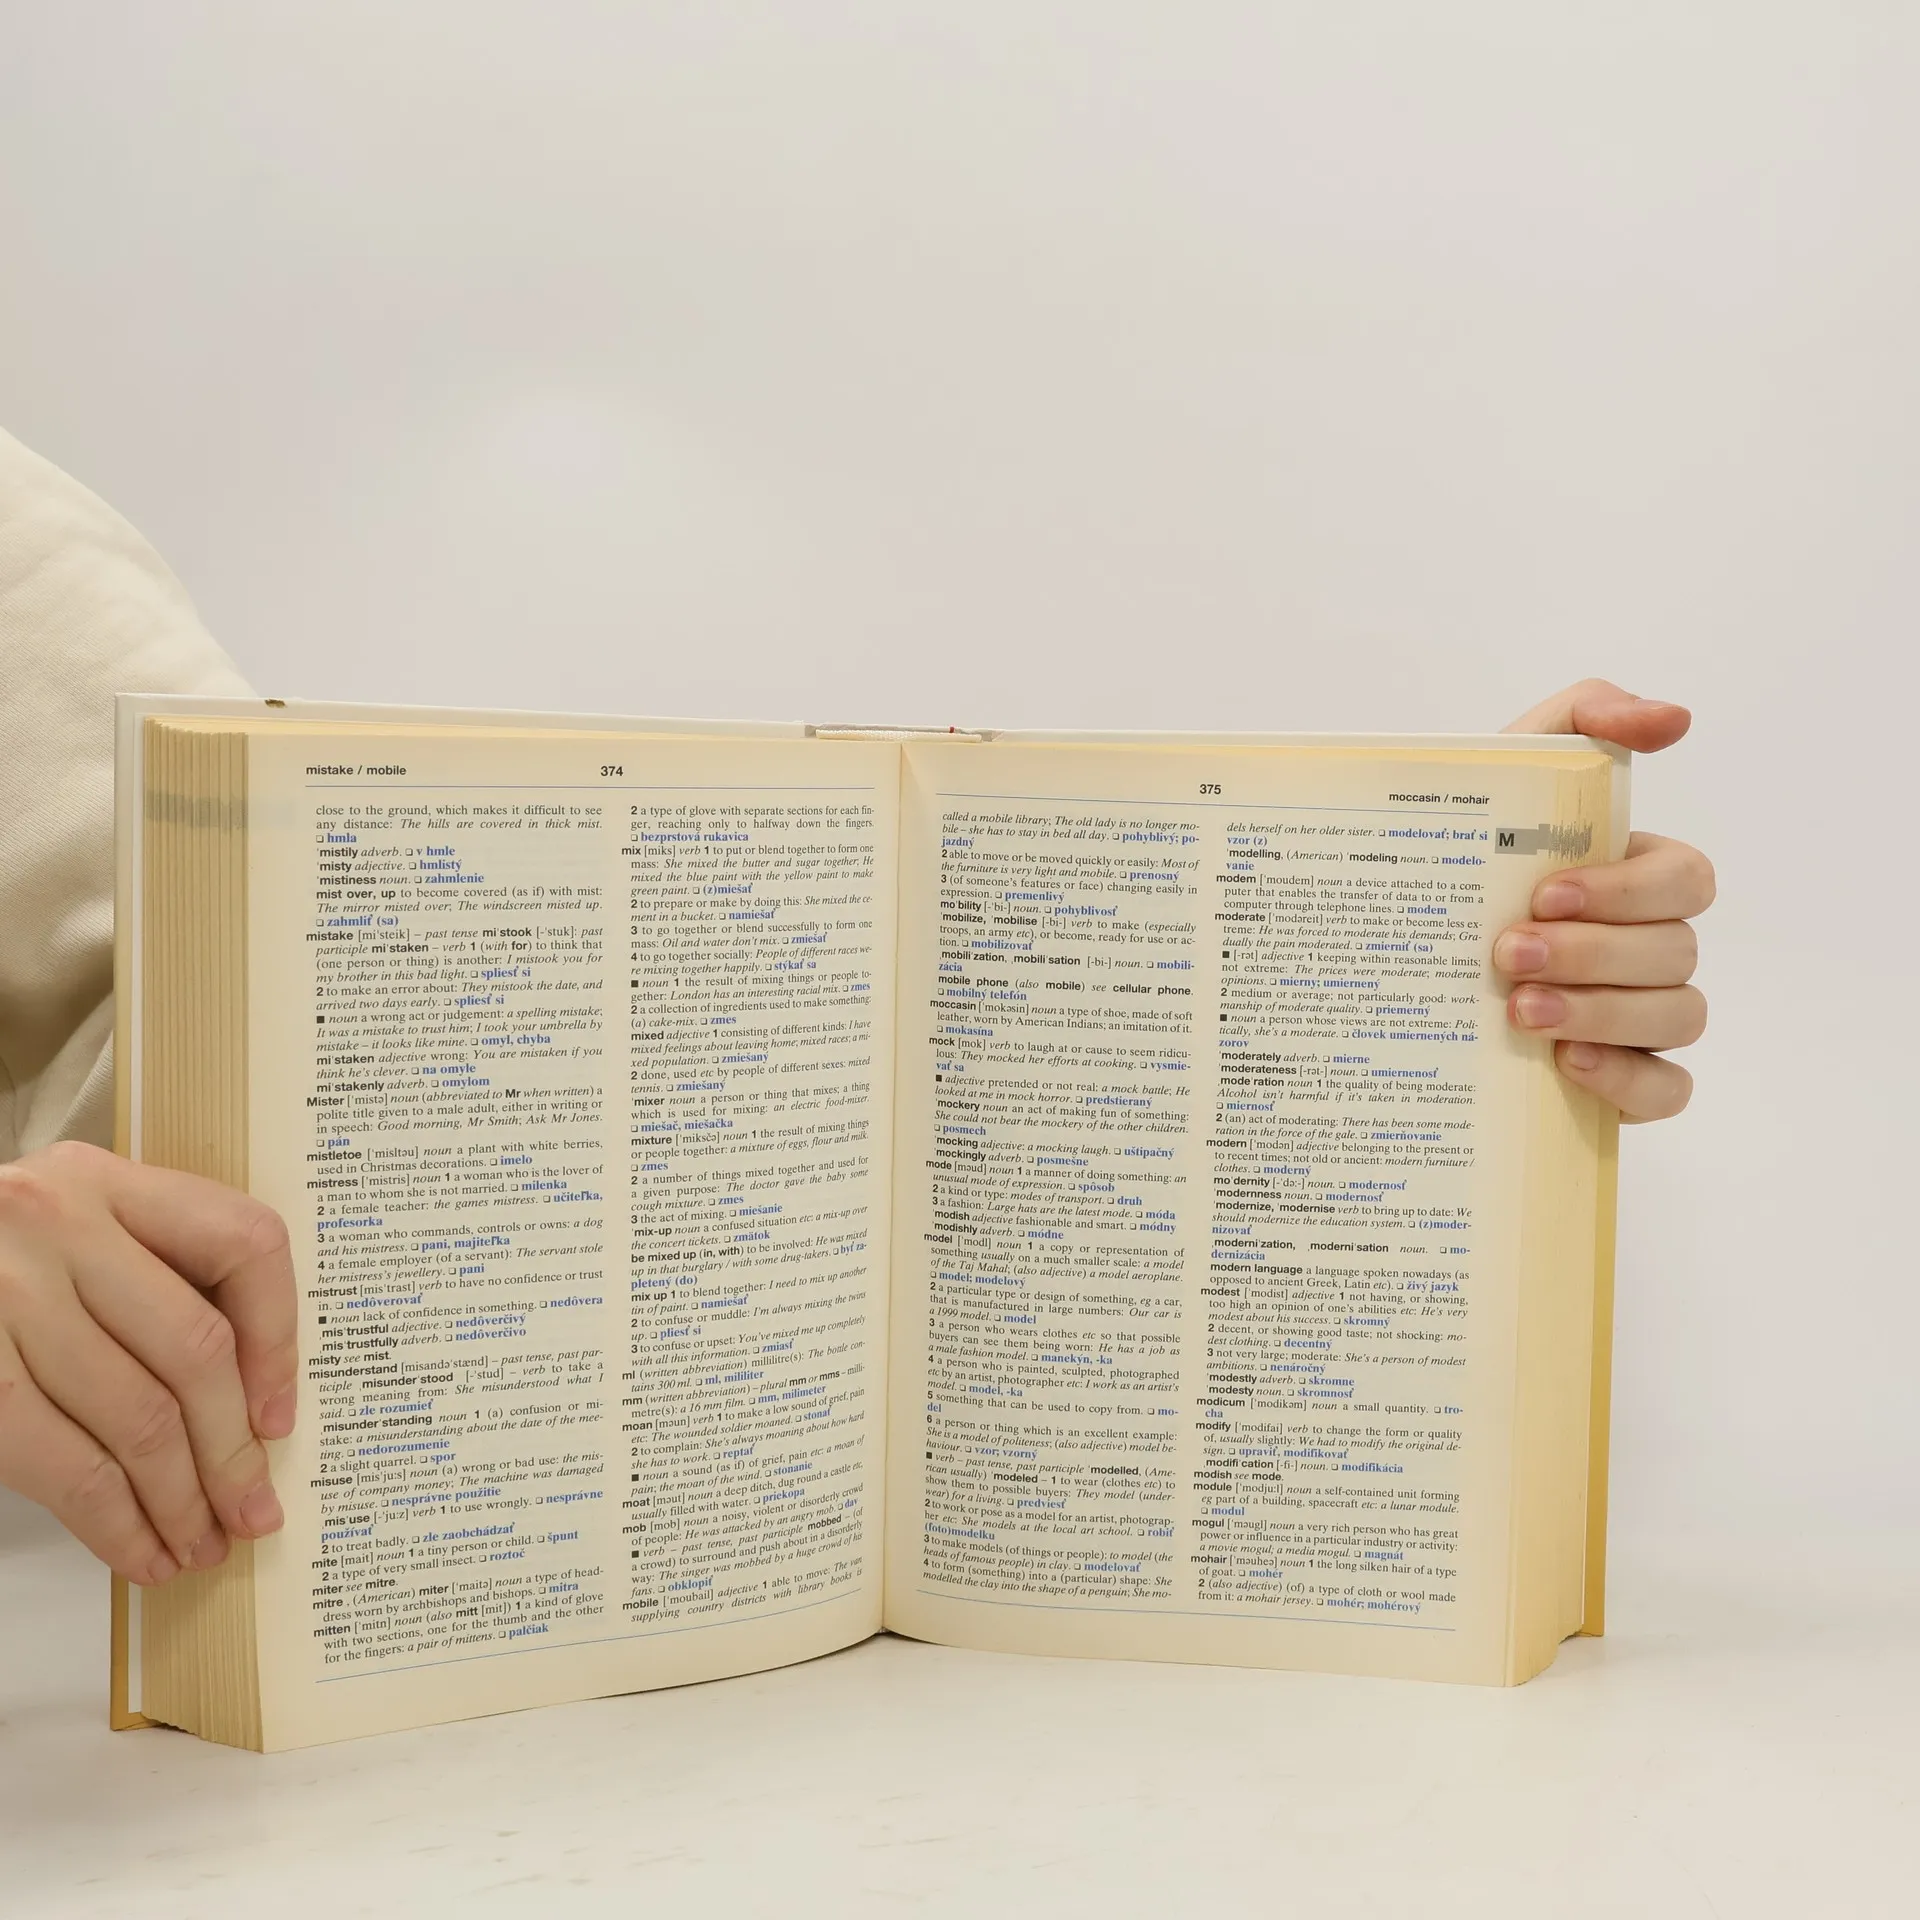 mistake / mobile
374
close to the ground, which makes it difficult to see
any distance: The hills are covered in thick mist.
❑ hmla
ˈmistily adverb. ❑ v hmle
ˈmisty adjective. ❑ hmlistý
ˈmistiness noun. ❑ zahmlenie
mist over, up to become covered (as if) with mist:
The mirror misted over; The windscreen misted up.
❑ zahmliť (sa)
mistake [miˈsteik] – past tense miˈstook [-ˈstuk]: past
participle miˈstaken – verb 1 (with for) to think that
(one person or thing) is another: I mistook you for
my brother in this bad light. ❑ spliesť si
2 to make an error about: They mistook the date, and
arrived two days early. ❑ spliesť si
■ noun a wrong act or judgement: a spelling mistake;
It was a mistake to trust him; I took your umbrella by
mistake – it looks like mine. ❑ omyl, chyba
miˈstaken adjective wrong: You are mistaken if you
think he's clever. ❑ na omyle
miˈstakenly adverb. ❑ omylom
Mister [ˈmistə] noun (abbreviated to Mr when written) a
polite title given to a male adult, either in writing or
in speech: Good morning, Mr Smith; Ask Mr Jones.
❑ pán
mistletoe [ˈmisltəu] noun a plant with white berries,
used in Christmas decorations. ❑ imelo
mistress [ˈmistris] noun 1 a woman who is the lover of
a man to whom she is not married. ❑ milenka
2 a female teacher: the games mistress. ❑ učiteľka,
profesorka
3 a woman who commands, controls or owns: a dog
and his mistress. ❑ pani, majiteľka
4 a female employer (of a servant): The servant stole
her mistress's jewellery. ❑ pani
mistrust [misˈtrast] verb to have no confidence or trust
in. ❑ nedôverovať
■ noun lack of confidence in something. ❑ nedôvera
ˌmisˈtrustful adjective. ❑ nedôverčivý
ˌmisˈtrustfully adverb. ❑ nedôverčivo
misty see mist.
misunderstand [misandəˈstænd] – past tense, past par-
ticiple ˌmisunderˈstood [-ˈstud] – verb to take a
wrong meaning from: She misunderstood what I
said. ❑ zle rozumieť
ˌmisunderˈstanding noun 1 (a) confusion or mi-
stake: a misunderstanding about the date of the mee-
ting. ❑ nedorozumenie
2 a slight quarrel. ❑ spor
misuse [misˈjuːs] noun (a) wrong or bad use: the mis-
use of company money; The machine was damaged
by misuse. ❑ nesprávne použitie
ˌmisˈuse [-ˈjuːz] verb 1 to use wrongly. ❑ nesprávne
používať
2 to treat badly. ❑ zle zaobchádzať
mite [mait] noun 1 a tiny person or child. ❑ špunt
2 a type of very small insect. ❑ roztoč
miter see mitre.
mitre , (American) miter [ˈmaitə] noun a type of head-
dress worn by archbishops and bishops. ❑ mitra
mitten [ˈmitn] noun (also mitt [mit]) 1 a kind of glove
with two sections, one for the thumb and the other
for the fingers: a pair of mittens. ❑ palčiak
2 a type of glove with separate sections for each fin-
ger, reaching only to halfway down the fingers.
❑ bezprstová rukavica
mix [miks] verb 1 to put or blend together to form one
mass: She mixed the butter and sugar together; He
mixed the blue paint with the yellow paint to make
green paint. ❑ (z)miešať
2 to prepare or make by doing this: She mixed the ce-
ment in a bucket. ❑ namiešať
3 to go together or blend successfully to form one
mass: Oil and water don't mix. ❑ zmiešať
4 to go together socially: People of different races we-
re mixing together happily. ❑ stýkať sa
■ noun 1 the result of mixing things or people to-
gether: London has an interesting racial mix. ❑ zmes
2 a collection of ingredients used to make something:
(a) cake-mix. ❑ zmes
mixed adjective 1 consisting of different kinds: I have
mixed feelings about leaving home; mixed races; a mi-
xed population. ❑ zmiešaný
2 done, used etc by people of different sexes: mixed
tennis. ❑ zmiešaný
ˈmixer noun a person or thing that mixes; a thing
which is used for mixing: an electric food-mixer.
❑ miešač, miešačka
mixture [ˈmiksčə] noun 1 the result of mixing things
or people together: a mixture of eggs, flour and milk.
❑ zmes
2 a number of things mixed together and used for
a given purpose: The doctor gave the baby some
cough mixture. ❑ zmes
3 the act of mixing. ❑ miešanie
ˈmix-up noun a confused situation etc: a mix-up over
the concert tickets. ❑ zmätok
be mixed up (in, with) to be involved: He was mixed
up in that burglary / with some drug-takers. ❑ byť za-
pletený (do)
mix up 1 to blend together: I need to mix up another
tin of paint. ❑ namiešať
2 to confuse or muddle: I'm always mixing the twins
up. ❑ pliesť si
3 to confuse or upset: You've mixed me up completely
with all this information. ❑ zmiasť
ml (written abbreviation) millilitre(s): The bottle con-
tains 300 ml. ❑ ml, mililiter
mm (written abbreviation) – plural mm or mms – milli-
metre(s): a 16 mm film. ❑ mm, milimeter
moan [məun] verb 1 to make a low sound of grief, pain
etc: The wounded soldier moaned. ❑ stonať
2 to complain: She's always moaning about how hard
she has to work. ❑ reptať
■ noun a sound (as if) of grief, pain etc: a moan of
pain; the moan of the wind. ❑ stonanie
moat [məut] noun a deep ditch, dug round a castle etc,
usually filled with water. ❑ priekopa
mob [mob] noun a noisy, violent or disorderly crowd
of people: He was attacked by an angry mob. ❑ dav
■ verb – past tense, past participle mobbed – (of
a crowd) to surround and push about in a disorderly
way: The singer was mobbed by a huge crowd of his
fans. ❑ obklopiť
mobile [ˈmoubail] adjective 1 able to move: The van
supplying country districts with library books is
375
moccasin / mohair
called a mobile library; The old lady is no longer mo-
bile – she has to stay in bed all day. ❑ pohyblivý; po-
jazdný
2 able to move or be moved quickly or easily: Most of
the furniture is very light and mobile. ❑ prenosný
3 (of someone's features or face) changing easily in
expression. ❑ premenlivý
moˈbility [-ˈbi-] noun. ❑ pohyblivosť
ˈmobilize, ˈmobilise [-bi-] verb to make (especially
troops, an army etc), or become, ready for use or ac-
tion. ❑ mobilizovať
ˌmobiliˈzation, ˌmobiliˈsation [-bi-] noun. ❑ mobili-
zácia
mobile phone (also mobile) see cellular phone.
❑ mobilný telefón
moccasin [ˈmokəsin] noun a type of shoe, made of soft
leather, worn by American Indians; an imitation of it.
❑ mokasína
mock [mok] verb to laugh at or cause to seem ridicu-
lous: They mocked her efforts at cooking. ❑ vysmie-
vať sa
■ adjective pretended or not real: a mock battle; He
looked at me in mock horror. ❑ predstieraný
ˈmockery noun an act of making fun of something:
She could not bear the mockery of the other children.
❑ posmech
ˈmocking adjective: a mocking laugh. ❑ uštipačný
ˈmockingly adverb. ❑ posmešne
mode [məud] noun 1 a manner of doing something: an
unusual mode of expression. ❑ spôsob
2 a kind or type: modes of transport. ❑ druh
3 a fashion: Large hats are the latest mode. ❑ móda
ˈmodish adjective fashionable and smart. ❑ módny
ˈmodishly adverb. ❑ módne
model [ˈmodl] noun 1 a copy or representation of
something usually on a much smaller scale: a model
of the Taj Mahal; (also adjective) a model aeroplane.
❑ model; modelový
2 a particular type or design of something, eg a car,
that is manufactured in large numbers: Our car is
a 1999 model. ❑ model
3 a person who wears clothes etc so that possible
buyers can see them being worn: He has a job as
a male fashion model. ❑ manekýn, -ka
4 a person who is painted, sculpted, photographed
etc by an artist, photographer etc: I work as an artist's
model. ❑ model, -ka
5 something that can be used to copy from. ❑ mo-
del
6 a person or thing which is an excellent example:
She is a model of politeness; (also adjective) model be-
haviour. ❑ vzor; vzorný
■ verb – past tense, past participle ˈmodelled, (Ame-
rican usually) ˈmodeled – 1 to wear (clothes etc) to
show them to possible buyers: They model (under-
wear) for a living. ❑ predviesť
2 to work or pose as a model for an artist, photograp-
her etc: She models at the local art school. ❑ robiť
(foto)modelku
3 to make models (of things or people): to model (the
heads of famous people) in clay. ❑ modelovať
4 to form (something) into a (particular) shape: She
modelled the clay into the shape of a penguin; She mo-
dels herself on her older sister. ❑ modelovať; brať si
vzor (z)
ˈmodelling, (American) ˈmodeling noun. ❑ modelo-
vanie
modem [ˈmoudem] noun a device attached to a com-
puter that enables the transfer of data to or from a
computer through telephone lines. ❑ modem
moderate [ˈmodəreit] verb to make or become less ex-
treme: He was forced to moderate his demands; Gra-
dually the pain moderated. ❑ zmierniť (sa)
■ [-rət] adjective 1 keeping within reasonable limits;
not extreme: The prices were moderate; moderate
opinions. ❑ mierny; umiernený
2 medium or average; not particularly good: work-
manship of moderate quality. ❑ priemerný
■ noun a person whose views are not extreme: Poli-
tically, she's a moderate. ❑ človek umiernených ná-
zorov
ˈmoderately adverb. ❑ mierne
ˈmoderateness [-rət-] noun. ❑ umiernenosť
ˌmodeˈration noun 1 the quality of being moderate:
Alcohol isn't harmful if it's taken in moderation.
❑ miernosť
2 (an) act of moderating: There has been some mode-
ration in the force of the gale. ❑ zmierňovanie
modern [ˈmodən] adjective belonging to the present or
to recent times; not old or ancient: modern furniture /
clothes. ❑ moderný
moˈdernity [-ˈdəː-] noun. ❑ modernosť
ˈmodernness noun. ❑ modernosť
ˈmodernize, ˈmodernise verb to bring up to date: We
should modernize the education system. ❑ (z)moder-
nizovať
ˌmoderniˈzation, ˌmoderniˈsation noun. ❑ mo-
dernizácia
modern language a language spoken nowadays (as
opposed to ancient Greek, Latin etc). ❑ živý jazyk
modest [ˈmodist] adjective 1 not having, or showing,
too high an opinion of one's abilities etc: He's very
modest about his success. ❑ skromný
2 decent, or showing good taste; not shocking: mo-
dest clothing. ❑ decentný
3 not very large; moderate: She's a person of modest
ambitions. ❑ nenáročný
ˈmodestly adverb. ❑ skromne
ˈmodesty noun. ❑ skromnosť
modicum [ˈmodikəm] noun a small quantity. ❑ tro-
cha
modify [ˈmodifai] verb to change the form or quality
of, usually slightly: We had to modify the original de-
sign. ❑ upraviť, modifikovať
ˌmodifiˈcation [-fi-] noun. ❑ modifikácia
modish see mode.
module [ˈmodjuːl] noun a self-contained unit forming
eg part of a building, spacecraft etc: a lunar module.
❑ modul
mogul [ˈməugl] noun a very rich person who has great
power or influence in a particular industry or activity:
a movie mogul; a media mogul. ❑ magnát
mohair [ˈməuheə] noun 1 the long silken hair of a type
of goat. ❑ mohér
2 (also adjective) (of) a type of cloth or wool made
from it: a mohair jersey. ❑ mohér; mohérový
M